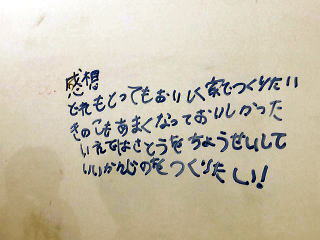 感想
どれもとってもおいしく家でつくりたい
きのこもあまくなっておいしかった
いえではさとうをちょうせいして
いいかんじのをつくりたい!